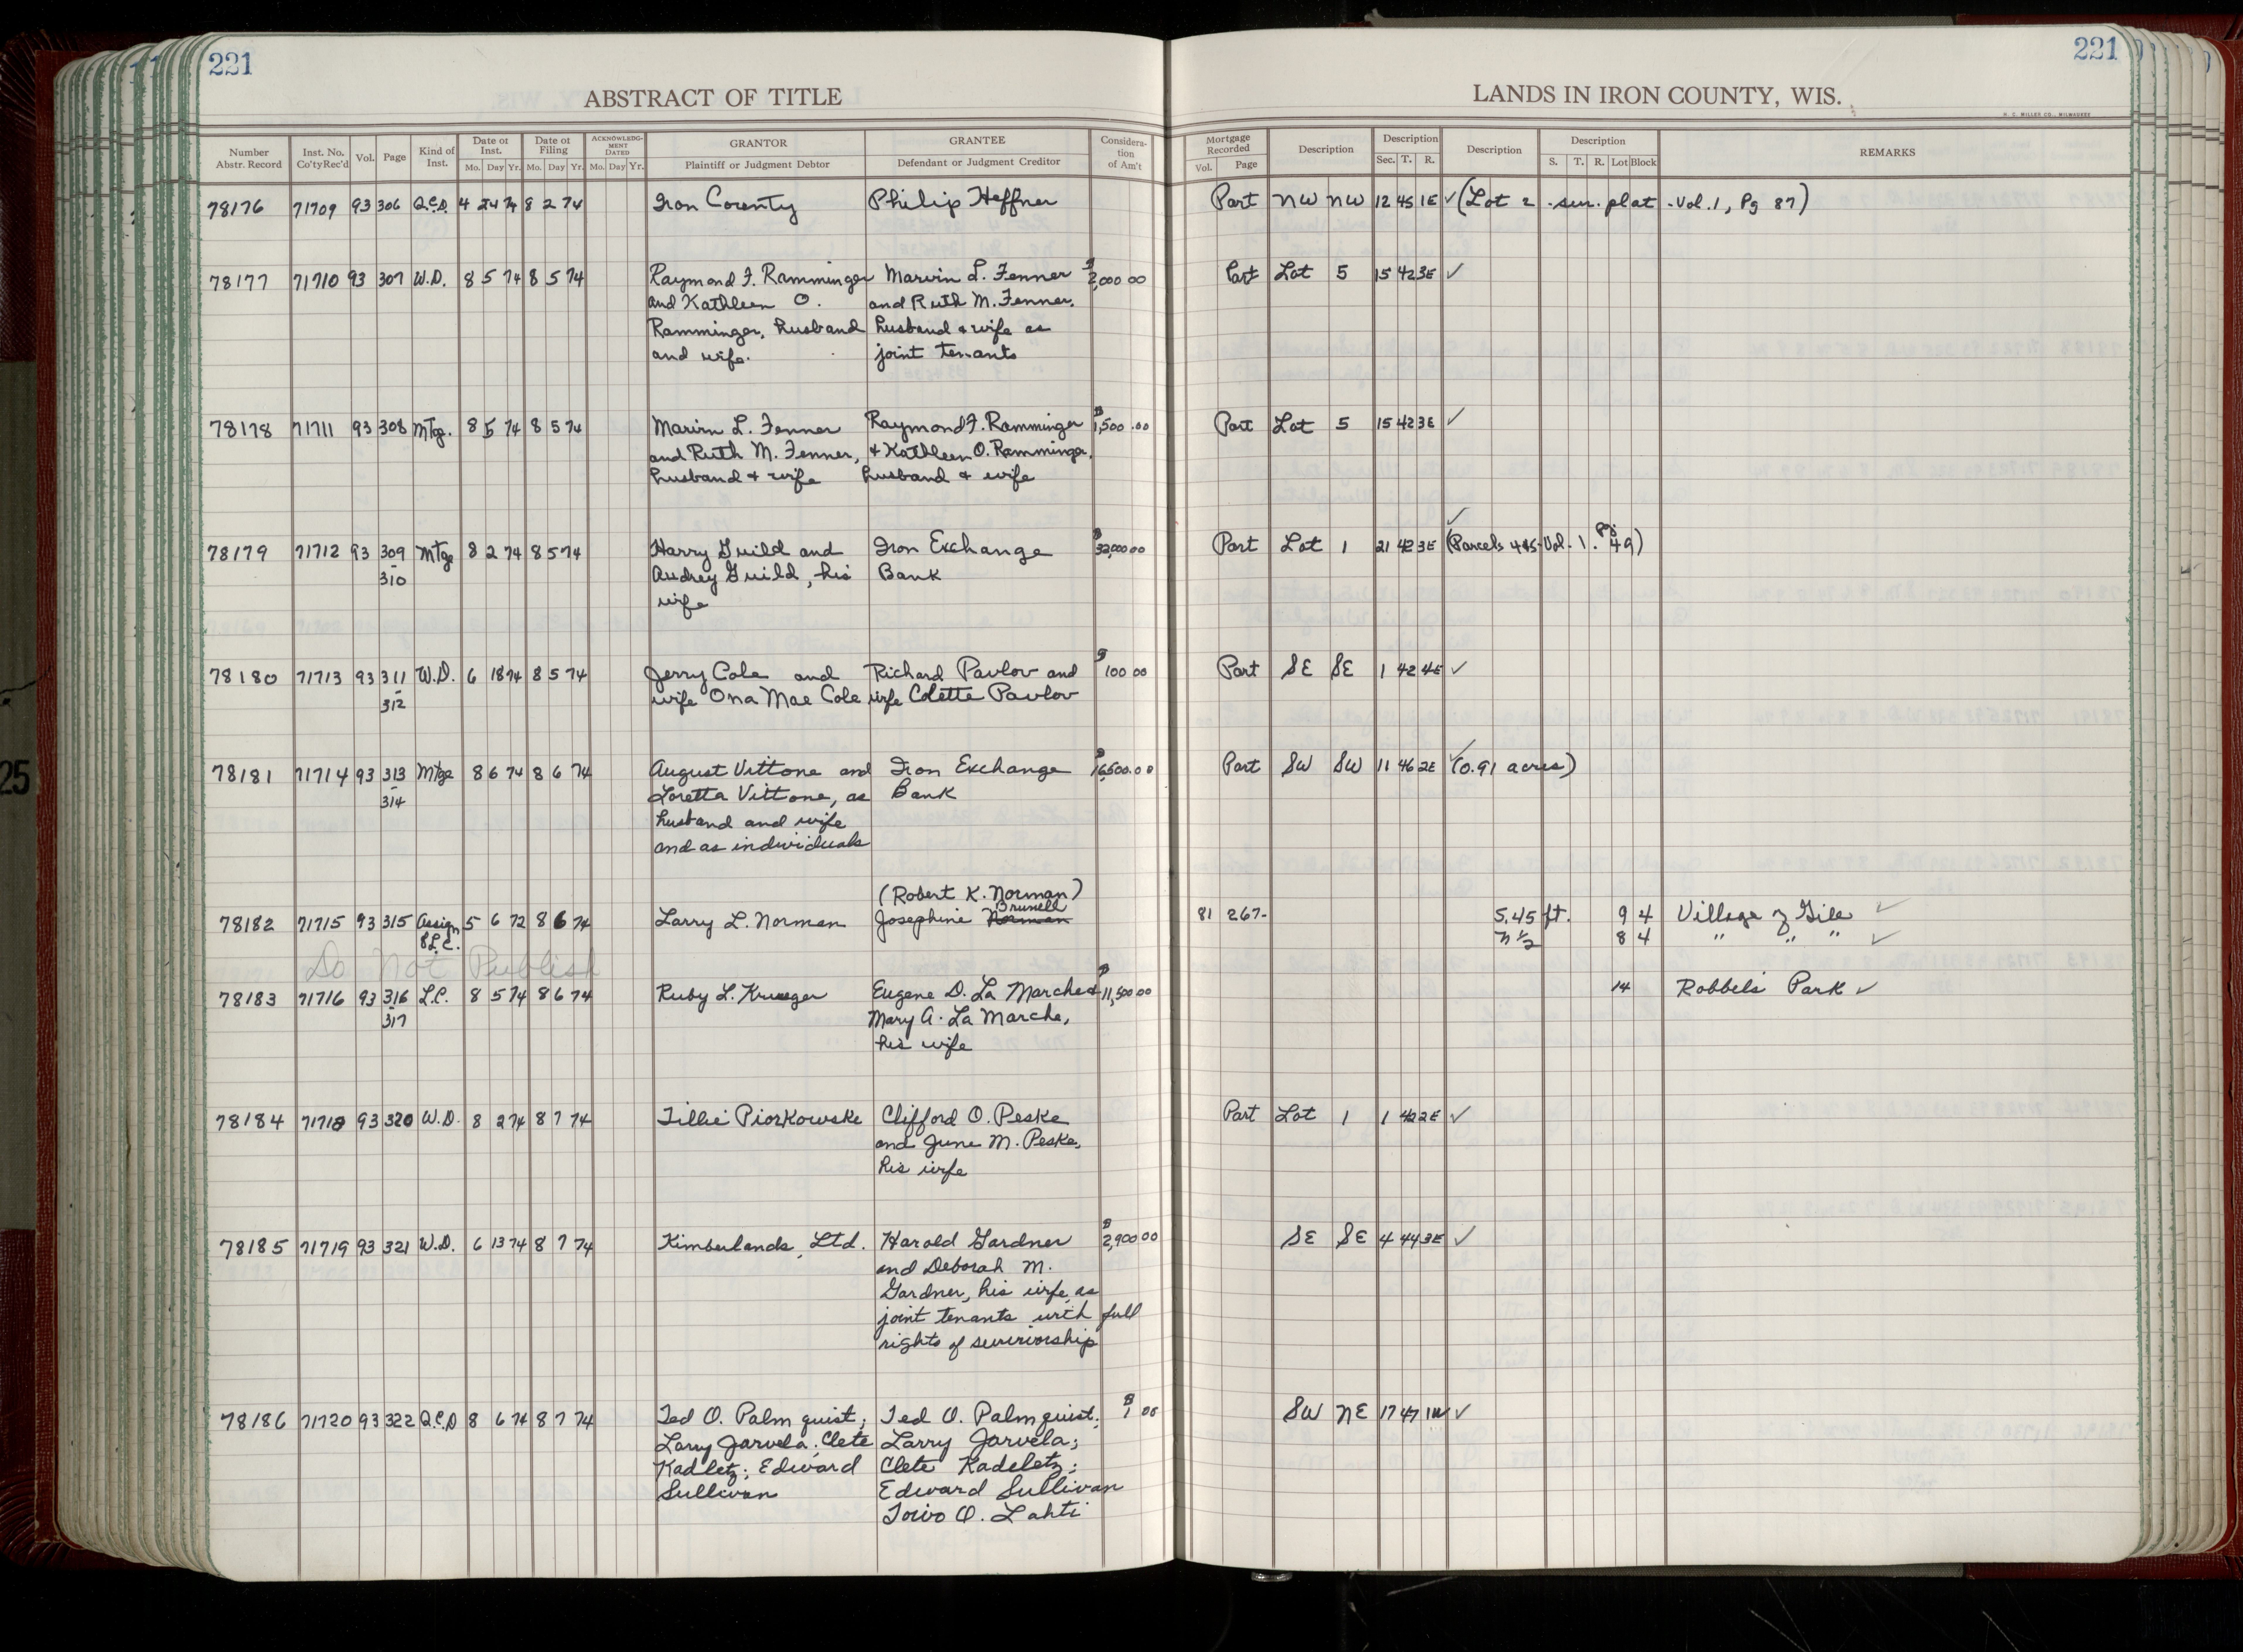 221
221
ABSTRACT OF TITLE
LANDS IN IRON COUNTY, WIS.
H. C. MILLER CO., MILWAUKEE
Number Abstr. Record
Inst. No. Co'tyRec'd
Vol.
Page
Kind of Inst.
Date of Inst.
Mo. Day Yr.
Date of Filing
Mo. Day Yr.
ACKNOWLEDGMENT DATED
Mo. Day Yr.
GRANTOR
Plaintiff or Judgment Debtor
GRANTEE
Defendant or Judgment Creditor
Consideration of Am't
Mortgage Recorded
Vol. Page
Description
Description
Sec. T. R.
Description
Description
S. T. R. Lot Block
REMARKS
78176 71709 93 306 Q.C.D. 4 24 74 8 2 74 Iron County Philip Heffner Part NW NW 12 45 1E ✓ (Lot 2 - sur. plat - Vol. 1, Pg 87)
78177 71710 93 307 W.D. 8 5 74 8 5 74 Raymond F. Ramminger Marvin L. Fenner $2,000 00 Part Lot 5 15 42 3E ✓
and Kathleen O. and Ruth M. Fenner,
Ramminger, husband husband & wife as
and wife. joint tenants
78178 71711 93 308 Mtge. 8 5 74 8 5 74 Marvin L. Fenner Raymond F. Ramminger $1,500.00 Part Lot 5 15 42 3E ✓
and Ruth M. Fenner, & Kathleen O. Ramminger,
husband & wife husband & wife
78179 71712 93 309 Mtge 8 2 74 8 5 74 Harry Guild and Iron Exchange $32,000 00 Part Lot 1 21 42 3E ✓ (Parcels 4&5-Vol. 1. Pg. 49)
- 310 Audrey Guild, his Bank
wife
78180 71713 93 311 W.D. 6 18 74 8 5 74 Jerry Cole and Richard Pavlov and $100 00 Part SE SE 1 42 4E ✓
- 312 wife Ona Mae Cole wife Colette Pavlov
78181 71714 93 313 Mtge 8 6 74 8 6 74 August Vittone and Iron Exchange $16,500.00 Part SW SW 11 46 2E ✓ (0.91 acres)
- 314 Loretta Vittone, as Bank
husband and wife
and as individuals
(Robert K. Norman)
Brunell
78182 71715 93 315 Assign 5 6 72 8 6 74 Larry L. Norman Josephine Norman 81 267- 5.45 ft. 9 4 Village of Gile ✓
& L.C. N ½ 8 4 " " " ✓
Do Not Publish
78183 71716 93 316 L.C. 8 5 74 8 6 74 Ruby L. Krueger Eugene D. La Marche & $11,500 00 14 Robbels Park ✓
317 Mary A. La Marche,
his wife
78184 71718 93 320 W.D. 8 2 74 8 7 74 Tillie Piorkowske Clifford O. Peske Part Lot 1 1 42 2E ✓
and June M. Peske,
his wife
78185 71719 93 321 W.D. 6 13 74 8 7 74 Kimberlands, Ltd. Harold Gardner $2,900 00 SE SE 4 44 3E ✓
and Deborah M.
Gardner, his wife, as
joint tenants with full
rights of survivorship
78186 71720 93 322 Q.C.D 8 6 74 8 7 74 Ted O. Palmquist; Ted O. Palmquist; $1 00 SW NE 17 47 1W ✓
Larry Jarvela; Clete Larry Jarvela;
Kadletz; Edward Clete Kadeletz;
Sullivan Edward Sullivan
Toivo O. Lahti
25